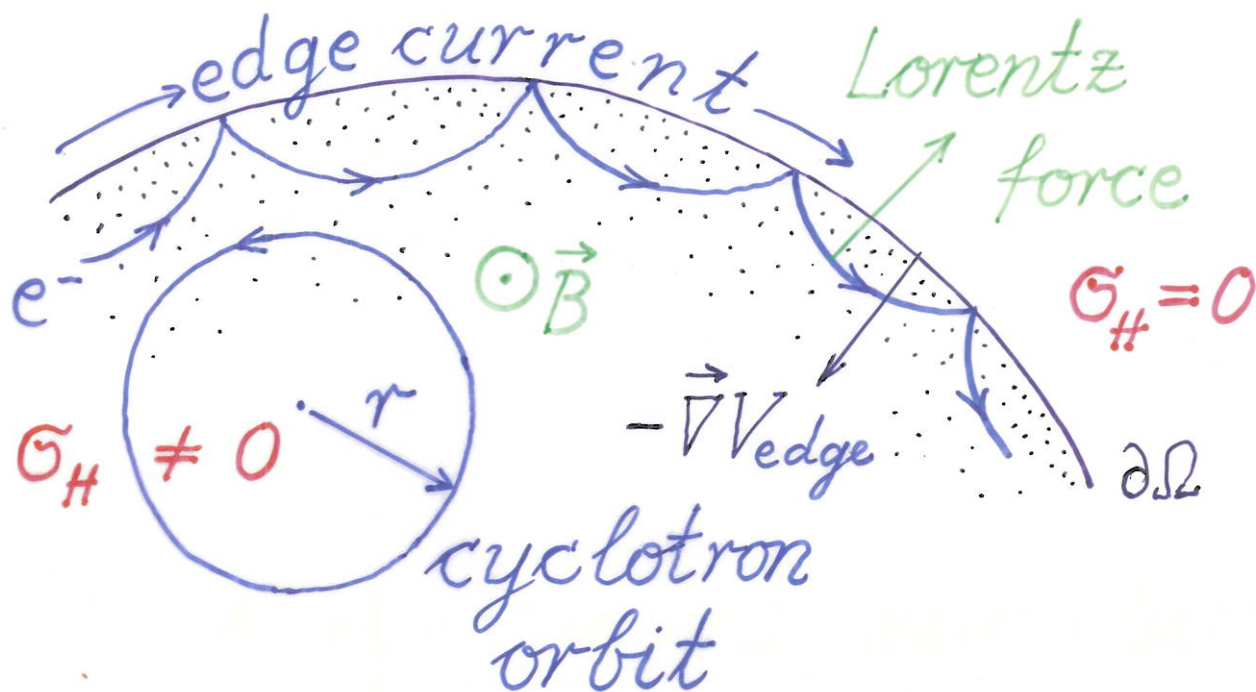 edge current
Lorentz
force
e⁻
⊙ B⃗
σ_H = 0
r
−∇⃗V_edge
σ_H ≠ 0
∂Ω
cyclotron
orbit